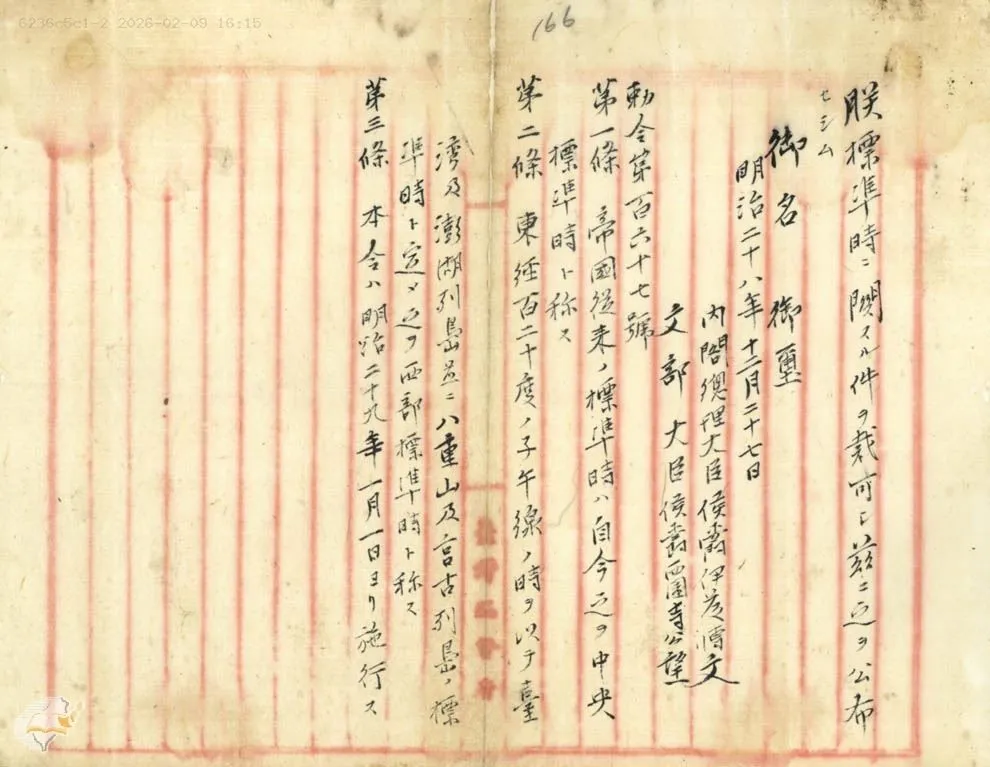 6236c5c1-2 2026-02-09 16:15
166
朕標準時ニ関スル件ヲ裁可シ茲ニ之ヲ公布
セシム
御名 御璽
明治二十八年十二月二十七日
内閣總理大臣侯爵伊藤博文
文部大臣侯爵西園寺公望
勅令第百六十七號
第一條 帝國従来ノ標準時ハ自今之ヲ中央
標準時ト称ス
第二條 東經百二十度ノ子午線ノ時ヲ以テ臺
湾及澎湖列島並ニ八重山及宮古列島ノ標
準時ト定メ之ヲ西部標準時ト称ス
第三條 本令ハ明治二十九年一月一日ヨリ施行ス